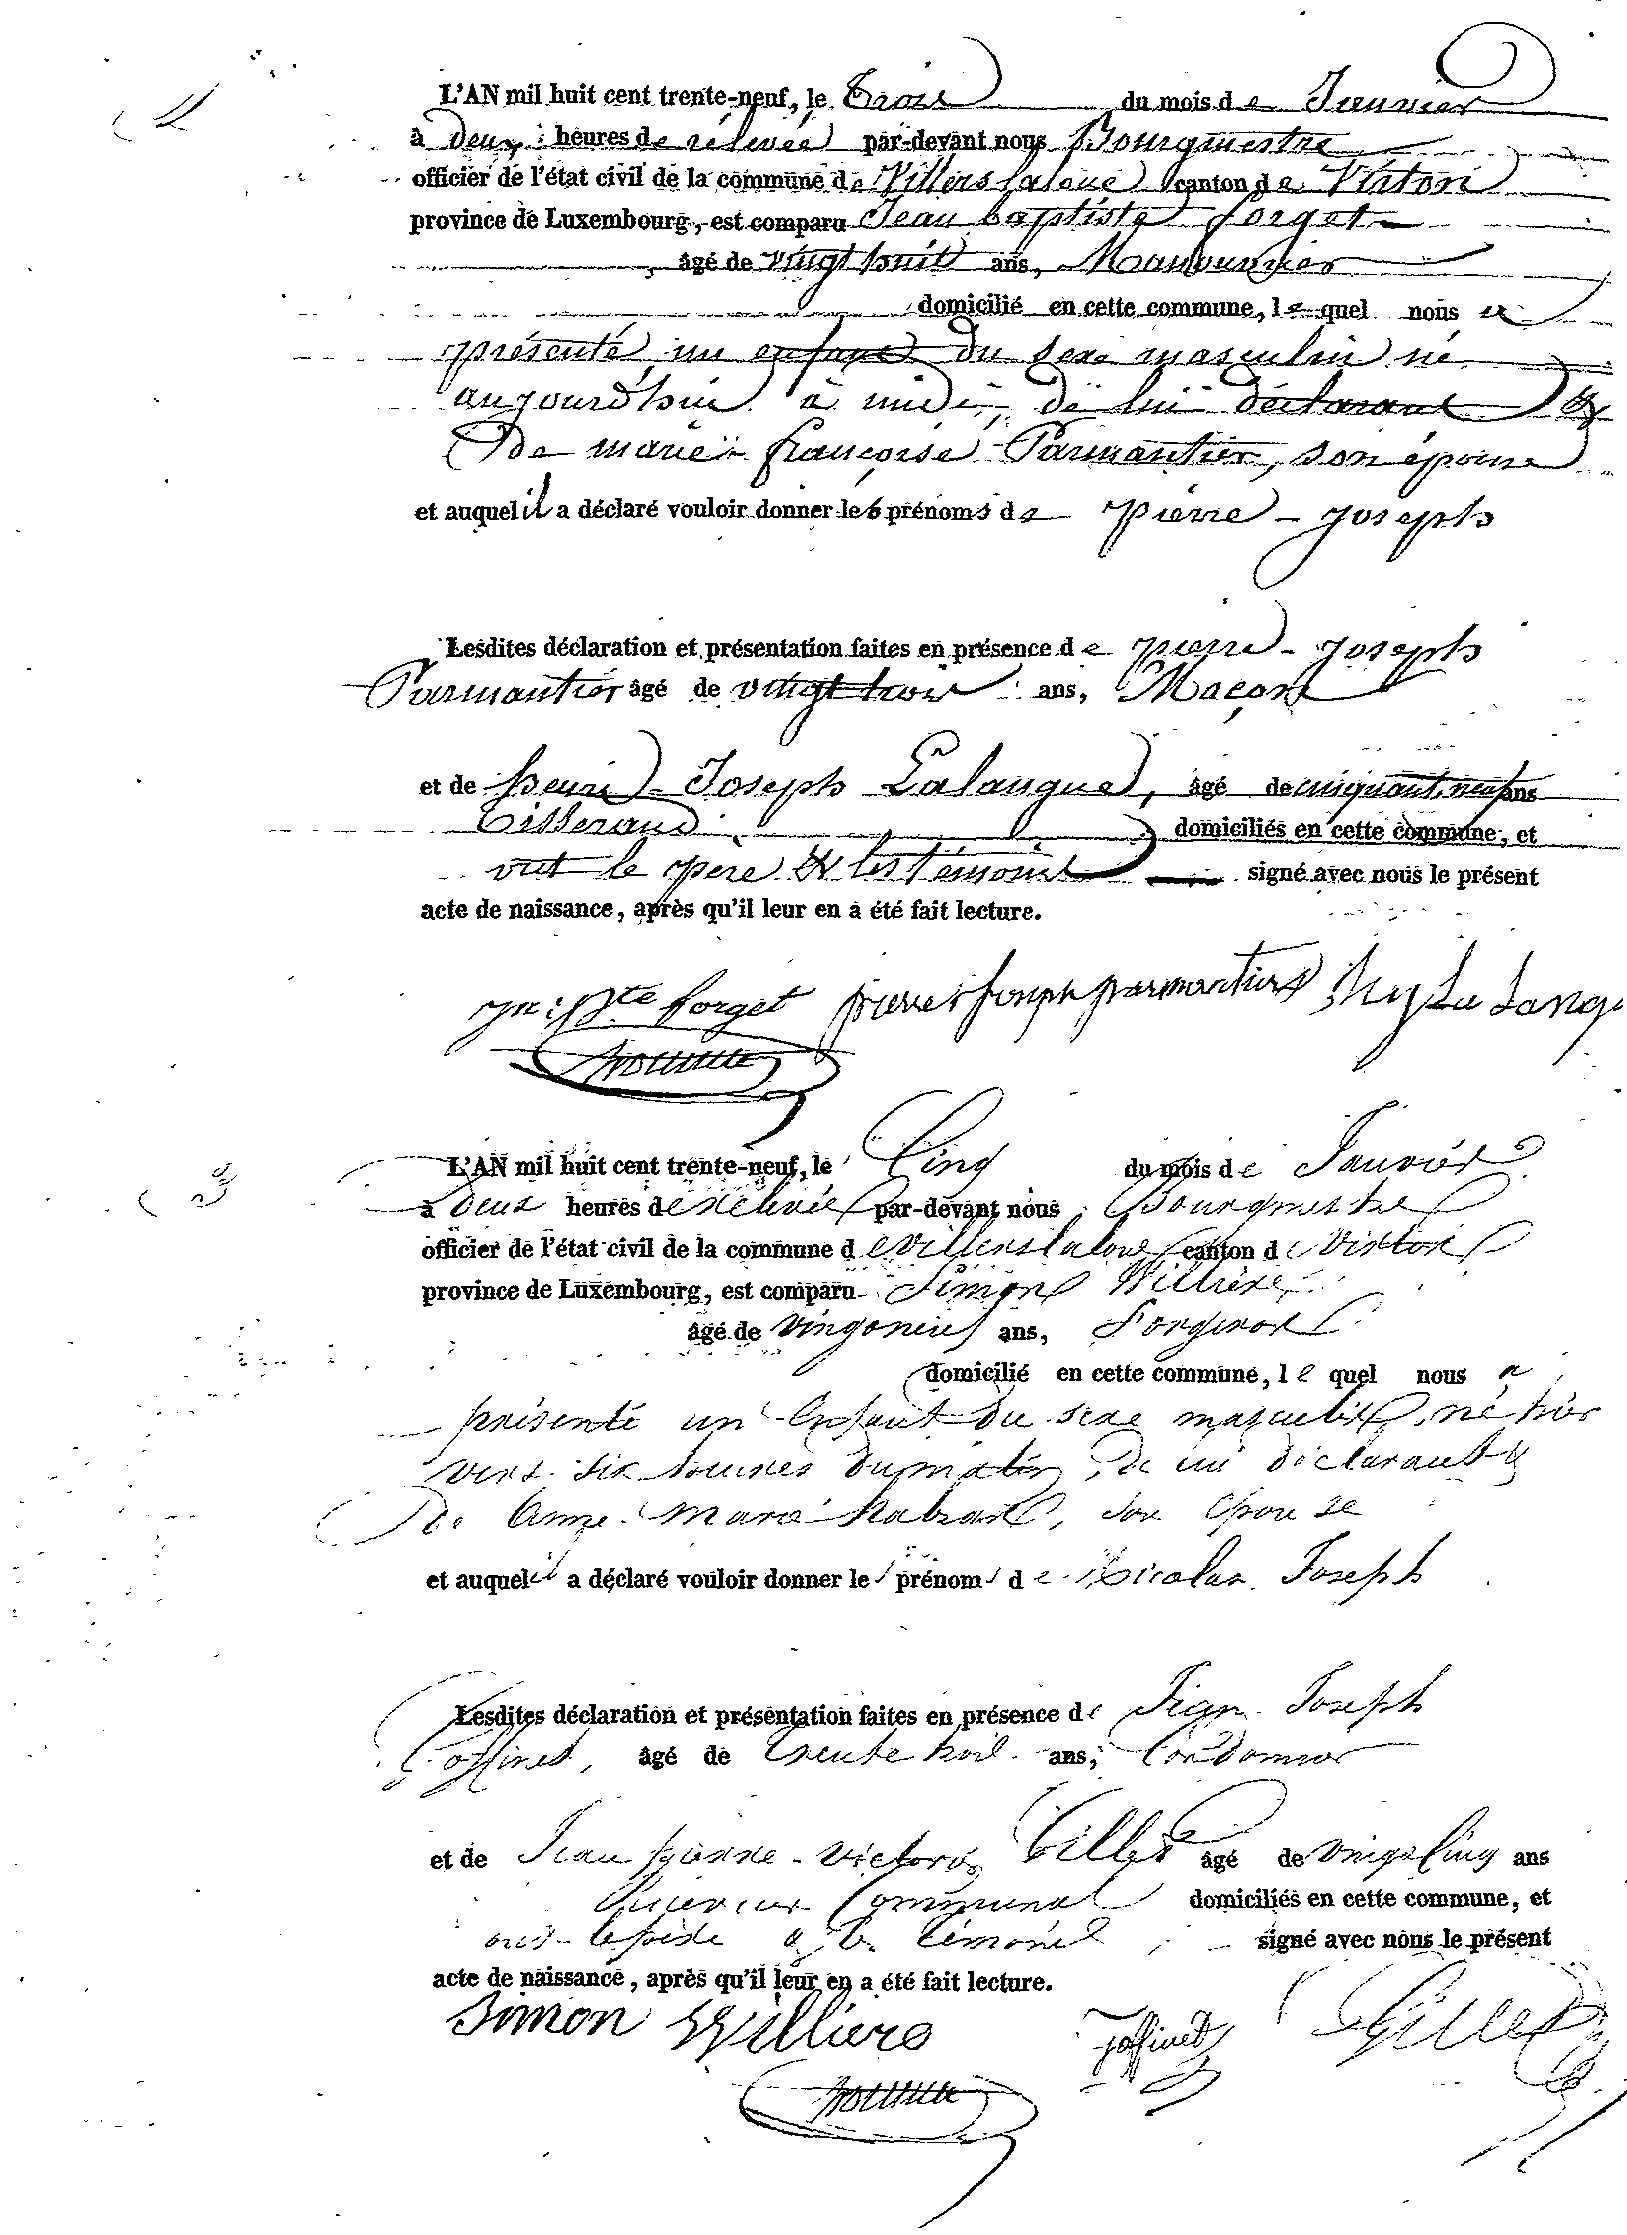 2
L'AN mil huit cent trente-neuf, le trois du mois de Janvier
à deux heures de rélevée par-devant nous Bourgmestre
officier de l'état civil de la commune de Villers laloue canton de Virton
province de Luxembourg, est comparu Jean baptiste forget
âgé de vingt huit ans, Manouvrier
domicilié en cette commune, lequel nous a
présenté un enfant du sexe masculin né
aujourd'hui à midi, de lui déclarant &
De marie françoise Parmantier, son épouse
et auquel il a déclaré vouloir donner les prénoms de pierre - joseph
Lesdites déclaration et présentation faites en présence de pierre - joseph
Parmantier âgé de vingt trois ans, Maçon
et de henri Joseph Lalangue, âgé de cinquante neuf ans
Tisserand domiciliés en cette commune, et
ont le père & les témoins signé avec nous le présent
acte de naissance, après qu'il leur en a été fait lecture.
jn: Bte forget pierre joseph parmantier hry La Lang
3
L'AN mil huit cent trente-neuf, le Cinq du mois de Janvier
à deux heures de relevée par-devant nous Bourgmestre
officier de l'état civil de la commune de Villers laloue canton de Virton
province de Luxembourg, est comparu Simon Willière
âgé de ans, Forgeron
domicilié en cette commune, lequel nous a
présenté un Enfant du sexe masculin, né hier
vers six heures du matin, de lui déclarant &
De Anne Marie, son épouse
et auquel il a déclaré vouloir donner les prénoms de Nicolas Joseph
Lesdites déclaration et présentation faites en présence de Jean Joseph
Goffinet, âgé de trente trois ans, Cordonnier
et de Jean pierre - Victor Gilles âgé de vingt Cinq ans
Communal domiciliés en cette commune, et
ont le père & les témoins signé avec nous le présent
acte de naissance, après qu'il leur en a été fait lecture.
Simon Williere Goffinet Gilles